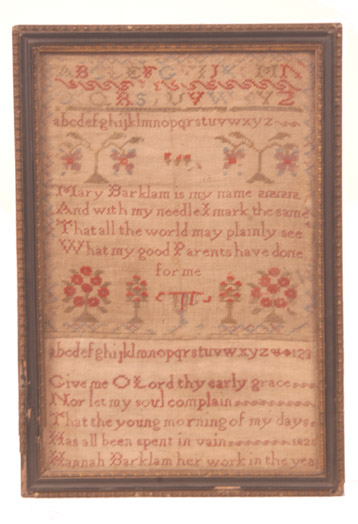 ABCDEFG IJK M
QRS UVW XYZ
abcdefghijklmnopqrstuvwxyz
Mary Barklam is my name
And with my needle I mark the same
That all the world may plainly see
What my good Parents have done
for me
abcdefghijklmnopqrstuvwxyz 123
Give me O Lord thy early grace
Nor let my soul complain
That the young morning of my days
Has all been spent in vain
Hannah Barklam her work in the year